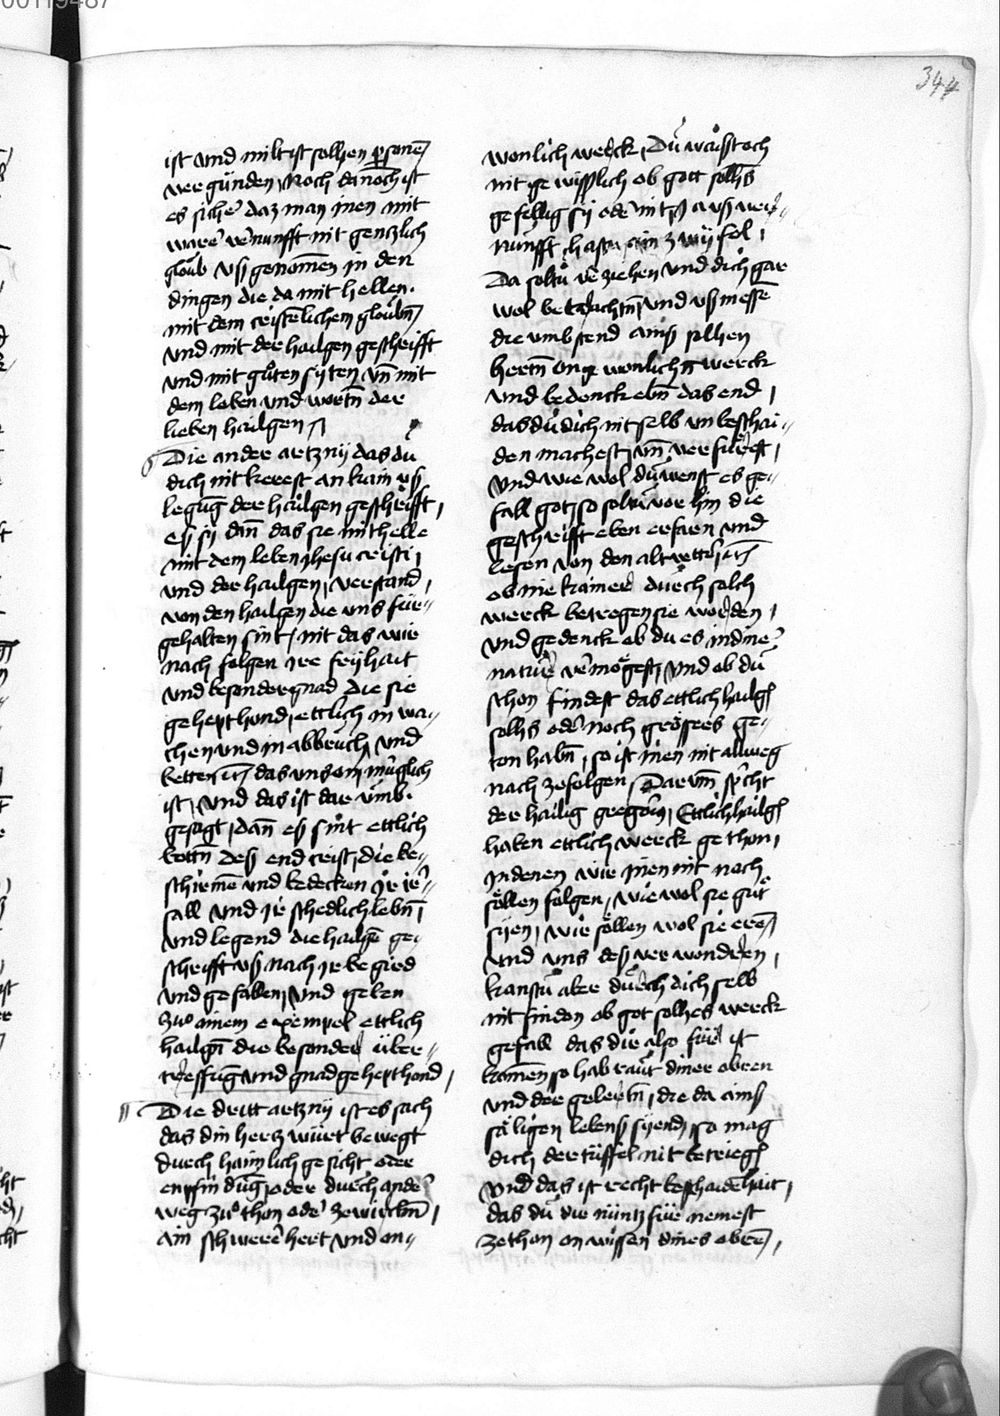 00119487
344
ist vnd milt ist sollhen psonē
vergúnden, Noch dānoch ist
es sichē daz man inen mit
warē vernunfft nit genczlich
gloub vß genomēn jn den
dingen die da mit hellen.
mit dem cristēlichem gloubn̄
vnd mit der hailgen geschrifft
vnd mit gůten sytten vn̄ mit
dem leben vnd wortn̄ der
lieben hailgen
Die ander artzny das du
dich nit kerest an kain vß
legūg der hailgen geschrifft,
eß sy dan̄ das sie mit helle
mit dem leben jhesu cristi,
vnd der hailgen, verstand,
von den hailgen die vns für
gehalten sint, nit das wir
nach folgen ire fryhait
vnd besonder gnad die sie
gehept hond, ettlich in wa
chen vnd in abbruch, vnd
betten das vns onmüglich
ist, vnd das ist dar vmb.
gesagt, dan̄ eß sint ettlich
bottn̄ deß endcrist, die be
schirmē vnd bedecken jr ir
sall vnd jr schedlich lebn̄,
vnd legend die hailgē ge
schrifft vß nach jr begird
vnd gefallen, vnd geben
zuo ainem exempel ettlich
hailgn̄ die besonder über
treffūg vnd gnad gehept hond,
Die dritt artzny ist es sach
das din hertz würt bewegt
durch haimlich gesicht oder
enpfindūg, oder durch ander
weg zuo thon oder zewircken,
ain schwere hert vnd on
wonlich werck, Du waisst och
nit gewisslich ob gott sollhs
gefellig sy oder nit vß ver
nunfft hastu ain zwyfel,
Da soltu verziehen vnd dich gar
wol betrachtn̄, vnd vß messē
die vmbstend ainß sollhen
hertn̄ vnge wonlichn̄ werck
vnd bedenck ebn̄ das end,
das du dich nit selb vnbeschai
den machest, vn̄ verfürest,
vnd wie wol du wenst es ge
fall got, so soltu vor hin die
geschrifft eben erfarn vnd
lesen von den altvettern
ob nie kainer durch solch
werck betrogen sie worden,
vnd gedenck ob du es in diner
natur vermögest, vnd ob du
schon findest das ettlich hailg
sollhs oder noch grössers ge
ton habn̄, so ist inen nit allweg
nach zefolgen, Darvm̄ spcht
der hailig gregori, Ettlich hailg
haben ettlich werck gethon,
jn denen wir jnen nit nach
söllen folgen, wie wol sie gut
syen, wir söllen wol sie eren
vnd vns deß verwondern,
kanstu aber durch dich selb
nit finden ob got sollhes werck
gefall das dir also für ist
komēn so hab raut diner obren
vnd der gelertn̄, die da ainß
säligen lebens syend, so mag
dich der tüffel nit betrieg
vnd das ist recht beschaidēhait,
das du dir nüntz für nemest
zethon on wissen dines obrē,